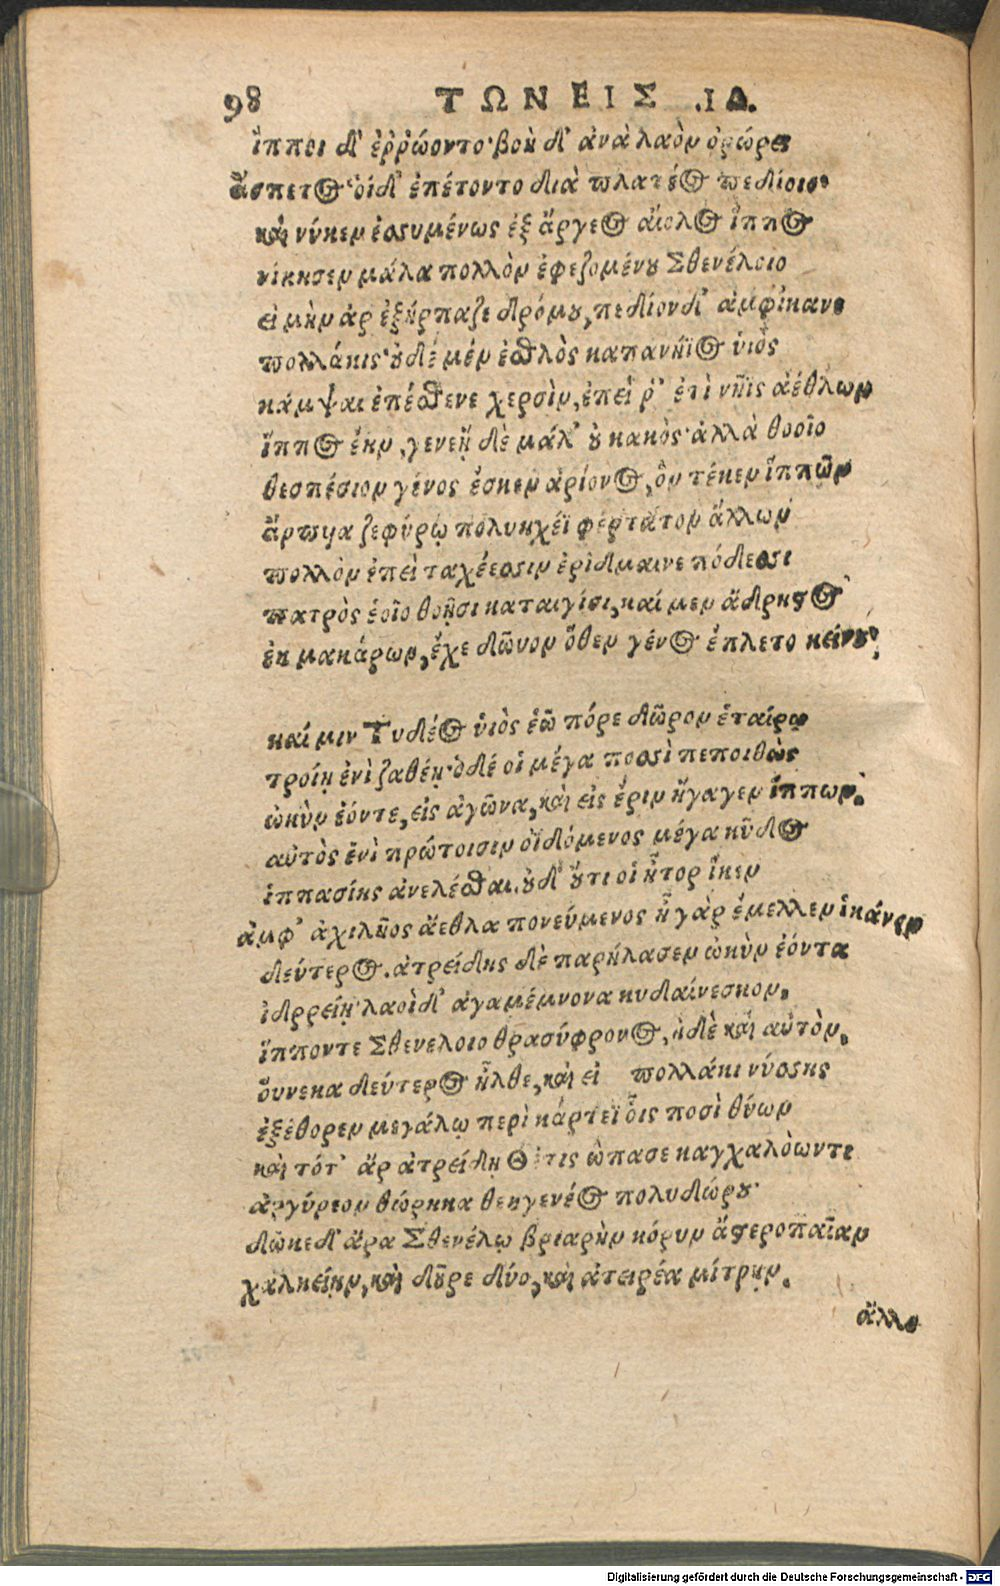 98 ΤΩΝ ΕΙΣ .ΙΔ.
ἵπποι δ' ἐῤῥώοντο· βοὴ δ' ἀνὰ λαὸν ὀρώρει
ἄσπετος· οἱ δ' ἐπέτοντο διὰ πλατέος πεδίοιο·
καὶ νύ κεν ἐσσυμένως ἐξ ἄργεος αἰολος ἵππος
νίκησεν μάλα πολλὸν ἐφεζομένου Σθενέλοιο
εἰ μὴν ἀρ ἐξήρπαζε δρόμου, πεδίον δ' ἀμφίκανε
πολλάκις· οὐδέ μέν ἐσθλὸς καπανηϊος ὑιὸς
κάμψαι ἐπέσθενε χερσὶν, ἐπεὶ ῥ' ἐτὶ νῆϊς ἀέθλων
ἵππος ἔην, γενεῇ δὲ μάλ' οὐ κακὸς· ἀλλὰ θοοῖο
θεσπέσιον γένος ἔσκεν ἀρίονος, ὃν τέκεν ἵππων
ἅρπυια ζεφύρῳ πολυηχέϊ φέρτατον ἄλλων
πολλὸν ἐπεὶ ταχέεσσιν ἐρίδμαινε πόδεσσι
πατρὸς ἑοῖο θοῇσι καταιγίσι, καί μεν ἄδρηστος
ἐκ μακάρων, ἔχε δῶνον ὅθεν γένος ἔπλετο κείνου,
καί μιν Τυδέος ὑιὸς ἑῶ πόρε δῶρον ἑταίρῳ
τροίῃ ἐνὶ ζαθέῃ· ὁ δέ οἱ μέγα ποσσὶ πεποιθὼς
ὠκὺν ἐόντε, εἰς ἀγῶνα, καὶ εἰς ἔριν ἤγαγεν ἵππων.
αὐτὸς ἐνὶ πρώτοισιν οἰδόμενος μέγα κῦδος
ἱππασίης ἀνελέσθαι. οὐδ' οὔτι οἱ ἦτορ ἵκεν
ἀμφ' ἀχιλῆος ἄεθλα πονεύμενος ἦ γὰρ ἔμελλεν ἱκάνειν
δεύτερος. ἀτρείδης δὲ παρήλασεν ὠκὺν ἐόντα
ἰδρρείῃ· λαοὶ δ' ἀγαμέμνονα κυδαίνεσκον.
ἵπποντε Σθενελοιο θρασύφρονος, ἠδὲ καὶ αὐτὸν.
οὕνεκα δεύτερος ἦλθε, καὶ εἰ πολλάκι νύσσης
ἐξέθορεν μεγάλῳ περὶ κάρτεϊ οἷς ποσὶ θύων
καὶ τότ' ἄρ ἀτρείδῃ Θέτις ὤπασε καγχαλόωντε
ἀργύρεον θώρηκα θεηγενέος πολυδώρου·
δῶκε δ' ἄρα Σθενέλῳ βριαρὴν κόρυν ἀστεροπαῖαν
χαλκείην, καὶ δοῦρε δύο, καὶ ἀτειρέα μίτρην.
ἄλλο
Digitalisierung gefördert durch die Deutsche Forschungsgemeinschaft - DFG